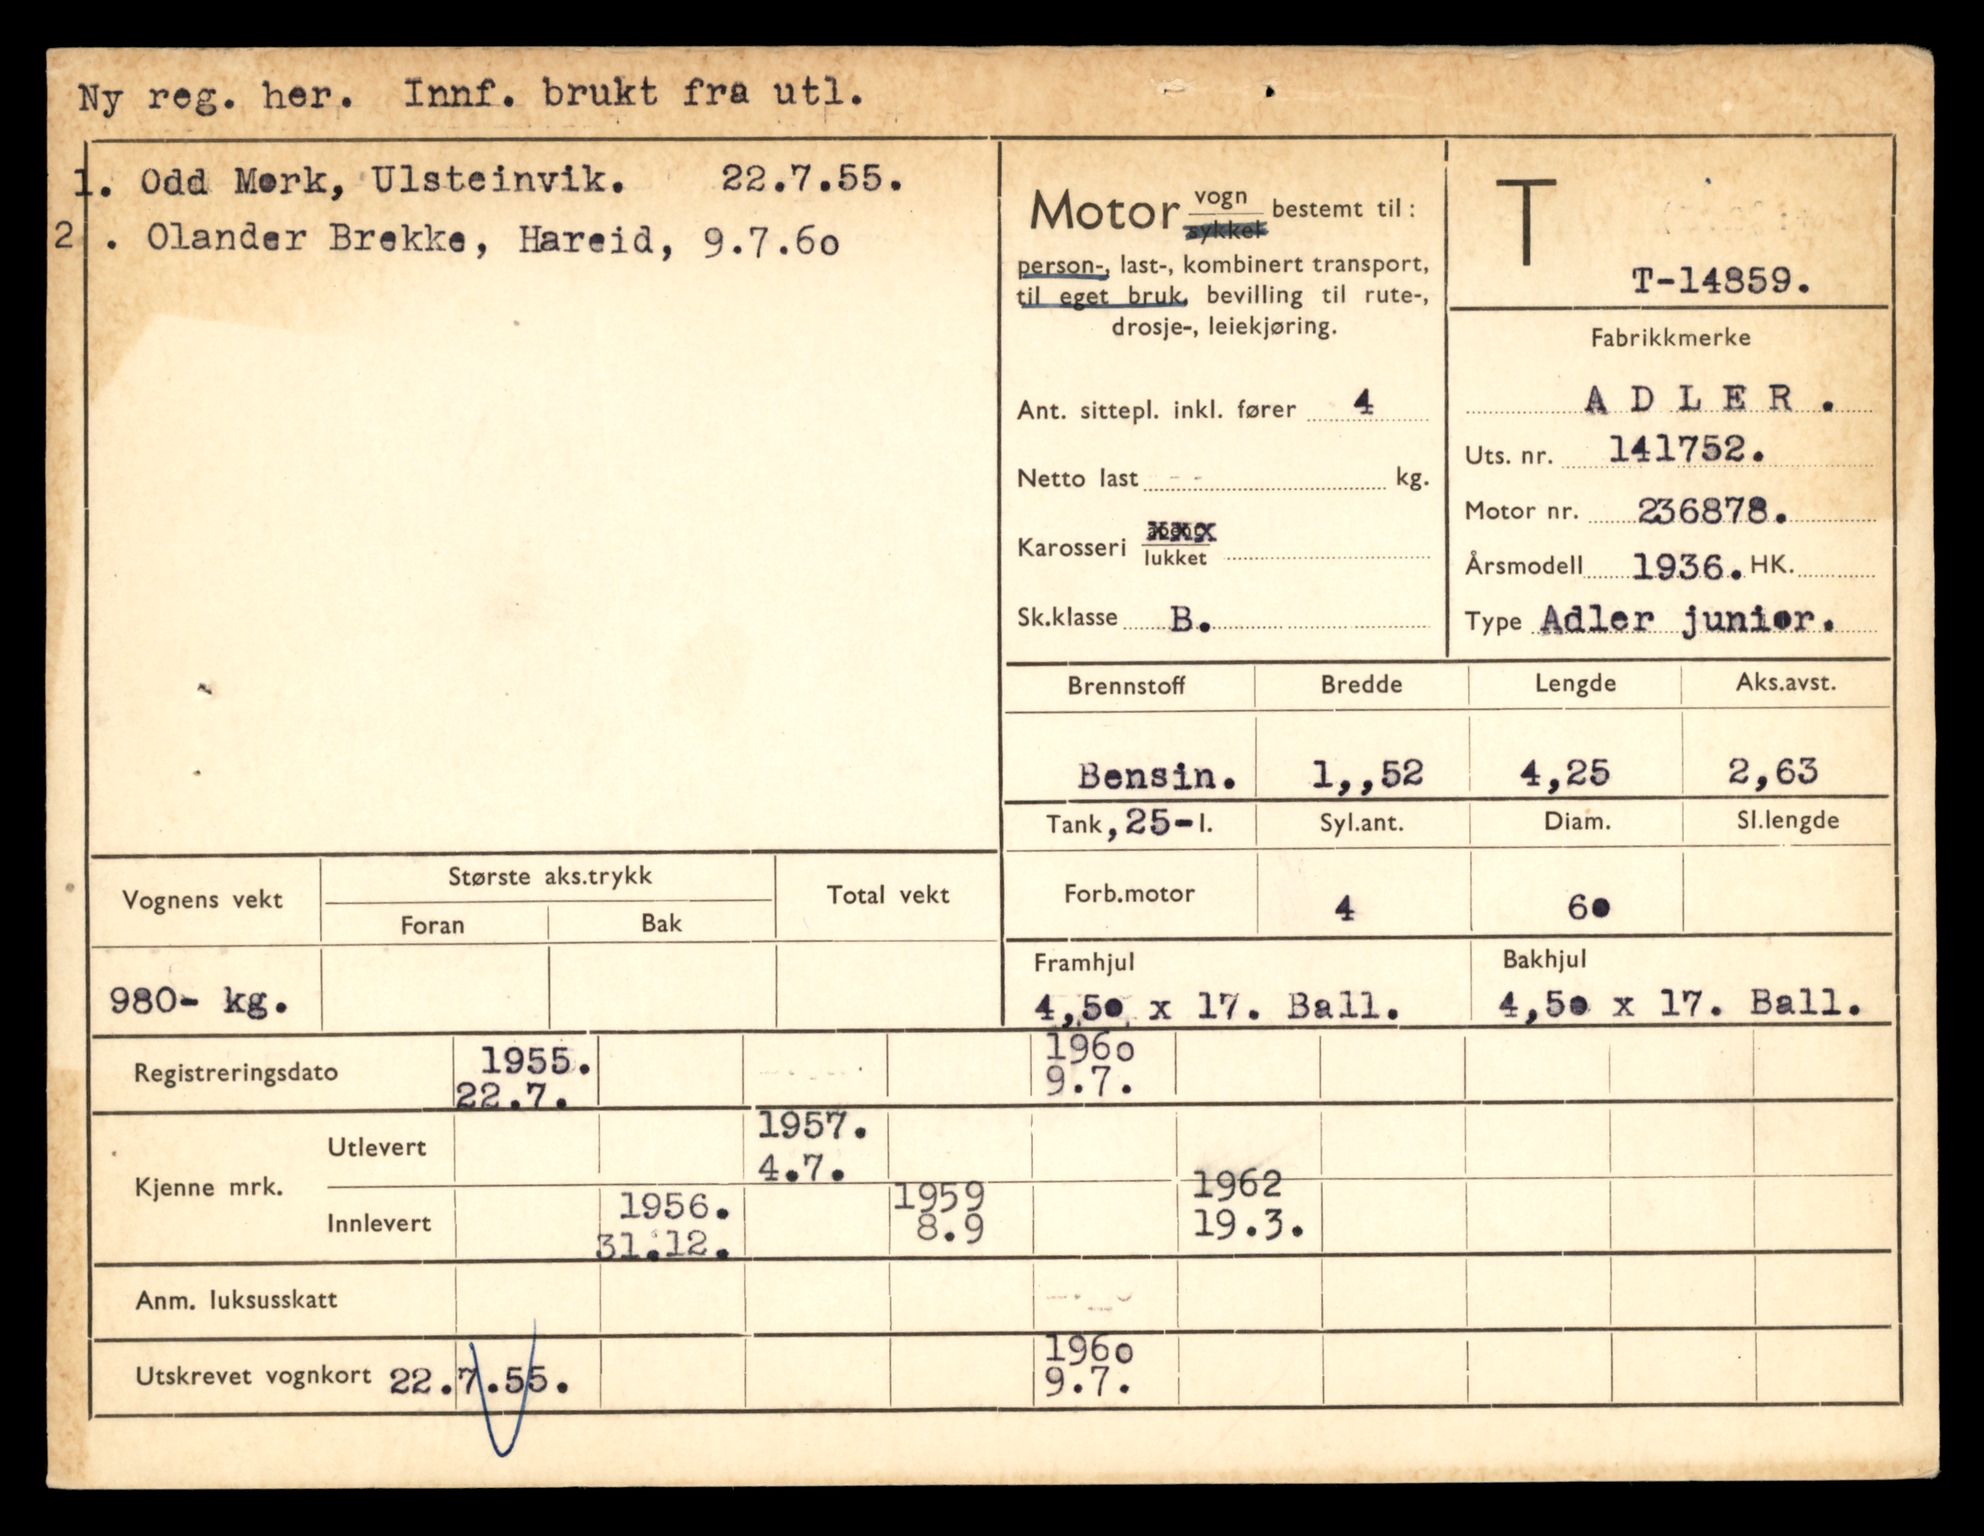 Ny reg. her. Innf. brukt fra utl.
1. Odd Mørk, Ulsteinvik. 22.7.55.
2 . Olander Brekke, Hareid, 9.7.6o
Motor vogn bestemt til :
sykkel
person-, last-, kombinert transport,
til eget bruk, bevilling til rute-,
drosje-, leiekjøring.
Ant. sittepl. inkl. fører 4
Netto last -- kg.
Karosseri
lukket
Sk.klasse B.
T
T-14859.
Fabrikkmerke
A D L E R .
Uts. nr. 141752.
Motor nr. 236878.
Årsmodell 1936. HK.
Type Adler junior.
Brennstoff Bredde Lengde Aks.avst.
Bensin. 1,,52 4,25 2,63
Tank, 25-l. Syl.ant. Diam. Sl.lengde
Forb.motor 4 60
Framhjul Bakhjul
4,50 x 17. Ball. 4,50 x 17. Ball.
Vognens vekt Største aks.trykk Total vekt
Foran Bak
980- kg.
Registreringsdato 1955. 196o
22.7. 9.7.
Kjenne mrk. Utlevert 1957.
4.7.
Innlevert 1956. 1959 1962
31.12. 8.9 19.3.
Anm. luksusskatt
Utskrevet vognkort 22.7.55. 196o
9.7.